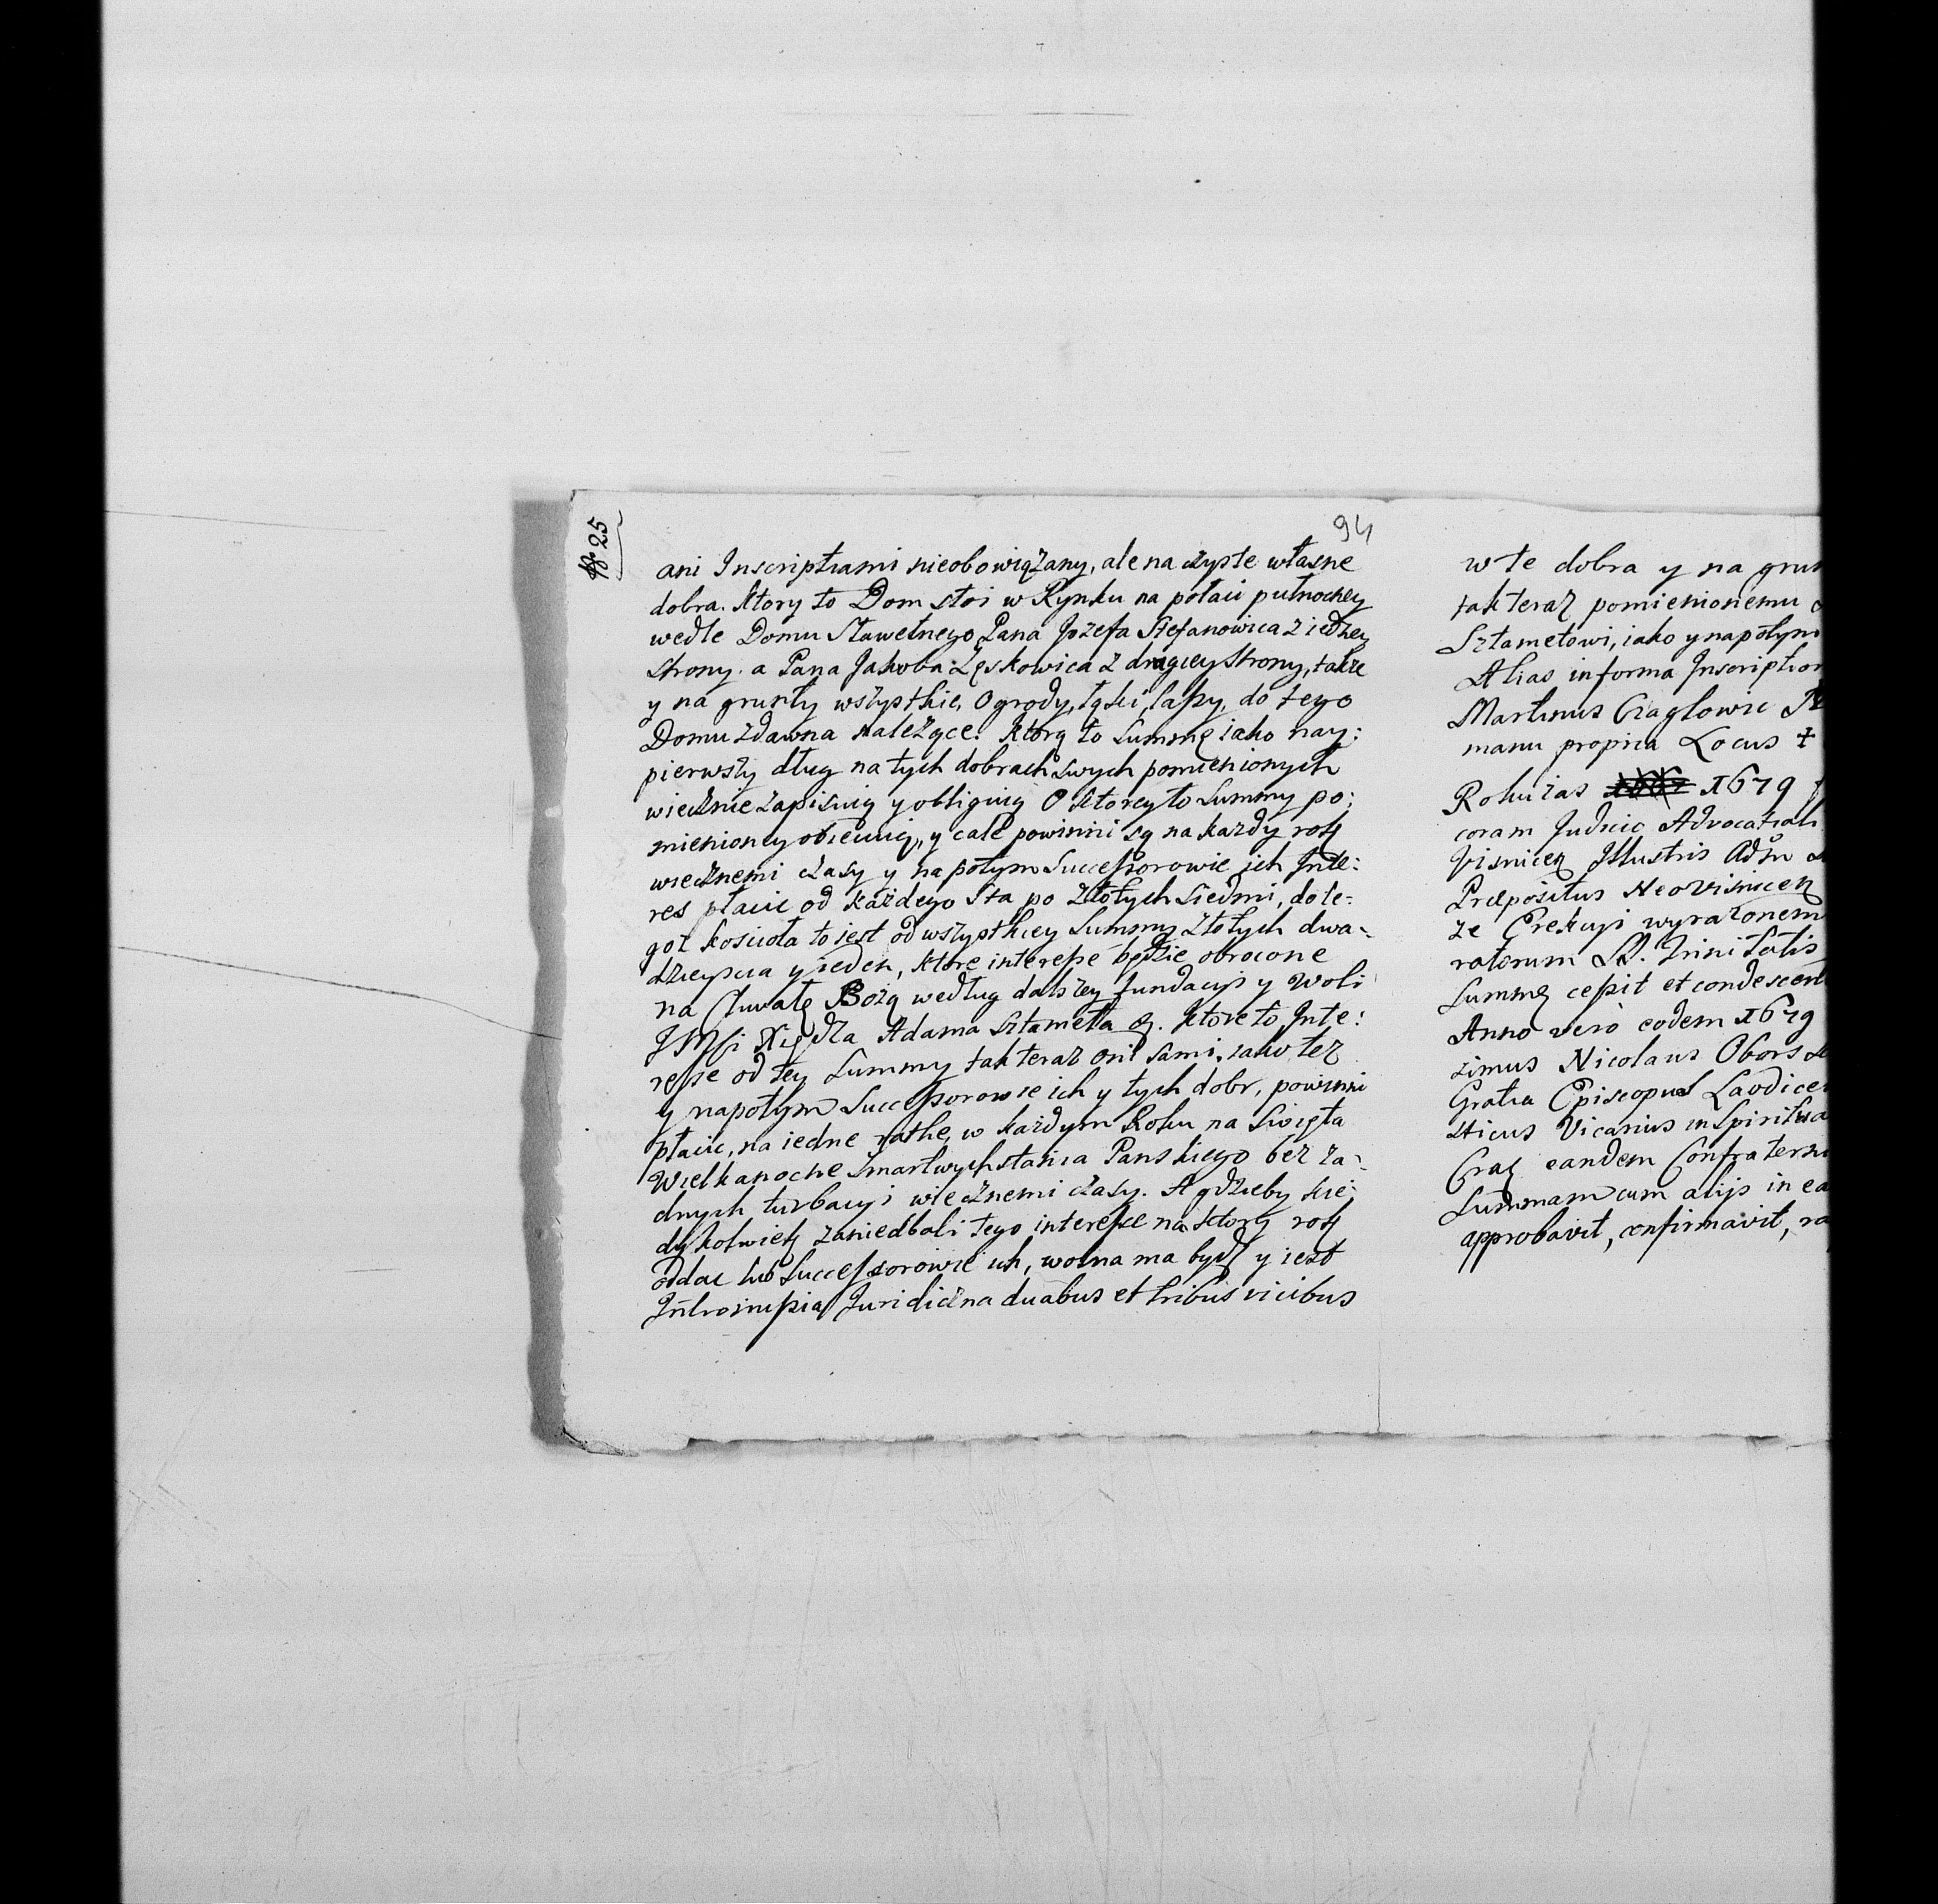 25
94
ani Inscriptiami nieobowiązany, ale na czyste własne
dobra. Ktory to Dom stoi w Rynku na połaci pułnocney
wedle Domu Sławetnego Pana Jozefa Stefanowica z iedney
strony. a Pana Jakoba Łęskowica z drugiey strony, takze
y na grunty wszystkie, Ogrody, łąki, lassy, do tego
Domu zdawna nalezące. Ktorą to Summę iako nay:
pierwszy dług na tych dobrach swych pomienionych
wiecznie zapisuią y obliguią O ktorey to Summy po:
mienioney obiecuią, y cale powinni są na kazdy rok
wiecznemi czasy y na potym Successorowie ich Inte:
res płacic od kazdego Sta po Złotych Siedmi, do te-
goz koscioła to jest od wszystkiey Summy Złotych dwa-
dziescia y ieden, ktore interesse będzie obrocone
na Chwałę Bożą według dalszey fundacyi y woli
JMCi Xiędza Adama Sztameta. Ktore to Inte:
resse od tey Summy tak teraz oni sami, iako tez
y napotym Successorowie ich y tych dobr, powinni
płacic, na iedne rathe, w kazdym Roku na Swięta
Wielkanocne Zmartwychstania Panskiego bez za-
dnych turbacyi wiecznemi czasy. A gdzieby kie:
dykolwiek zaniedbali tego interesse na ktory rok
oddac lub Successorowie ich, wolna ma bydz y iest
Intromissia Juridiczna duabus et tribus vicibus
w te dobra y na grun
tak teraz pomienionemu
Sztametowi, iako y napotym
Alias in forma Inscription
Martinus Ciaglowic
manu propria Locus +
Roku zas 1679
coram Judicio Advocatiali
Visnicen Illustris Adm
Præpositus Neovisnicen
ze Erekcyi wyrazonem
ratorum SS. Trinitatis
Summę cessit et condescen
Anno vero eodem 1679
simus Nicolaus Obors
Gratia Episcopus Laodicen
sticus Vicarius in Spiritua
Crac eandem Confraterni
Summam cum alijs in ea
approbavit, confirmavit, ra